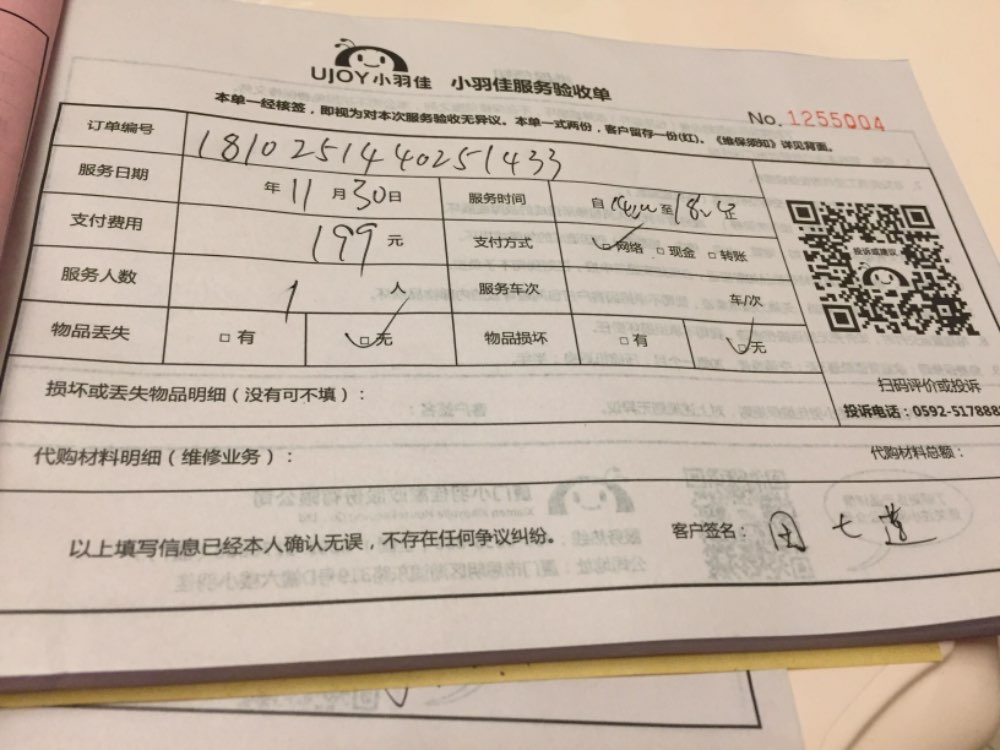 UJOY小羽佳 小羽佳服务验收单
No. 1255004
本单一经核签，即视为对本次服务验收无异议。本单一式两份，客户留存一份(红)。《维保须知》详见背面。
订单编号 1810251440251433
服务日期 年 11 月 30 日 服务时间 自 至
支付费用 199 元 支付方式 网络 现金 转账
服务人数 1 人 服务车次 车/次
物品丢失 有 无 物品损坏 有 无
投诉或建议
扫码评价或投诉
投诉电话：0592-517888
损坏或丢失物品明细（没有可不填）：
代购材料明细（维修业务）： 代购材料总额：
以上填写信息已经本人确认无误，不存在任何争议纠纷。 客户签名：